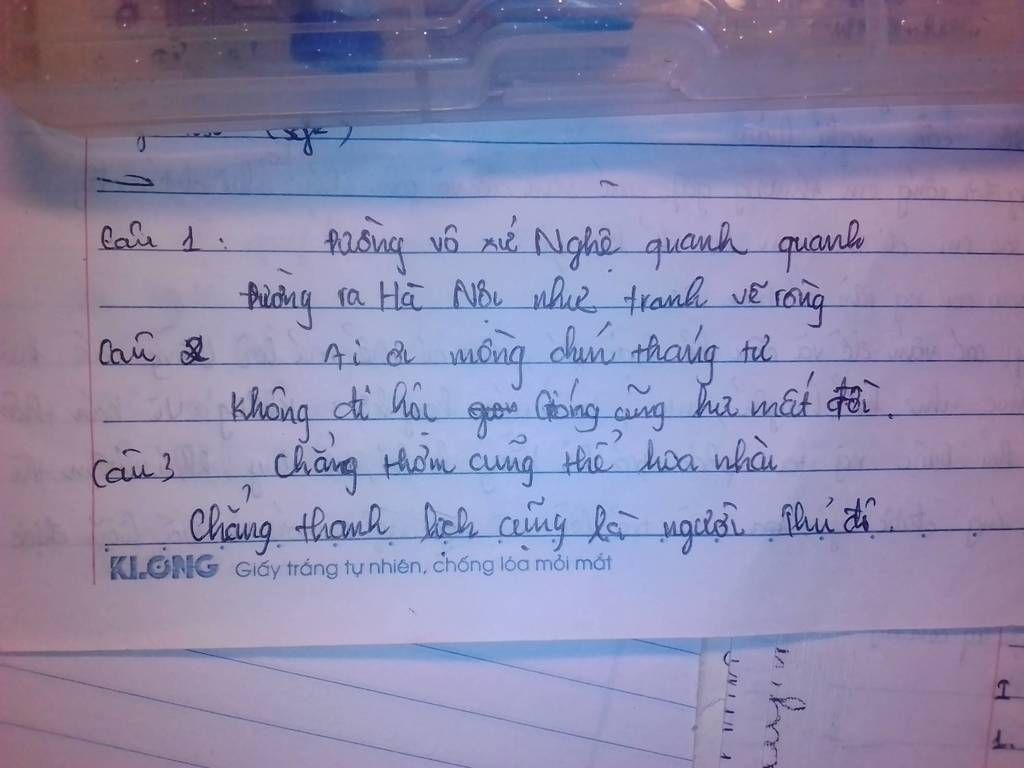 Câu 1: Đường vô xứ Nghệ quanh quanh
Đường ra Hà Nội như tranh vẽ rồng
Câu 2 Ai ơi mồng chín tháng tư
Không đi hội Gióng cũng hư mất đời.
Câu 3 Chẳng thơm cũng thể hoa nhài
Chẳng thanh lịch cũng là người Thủ đô.
KLONG Giấy trắng tự nhiên, chống lóa mỏi mắt